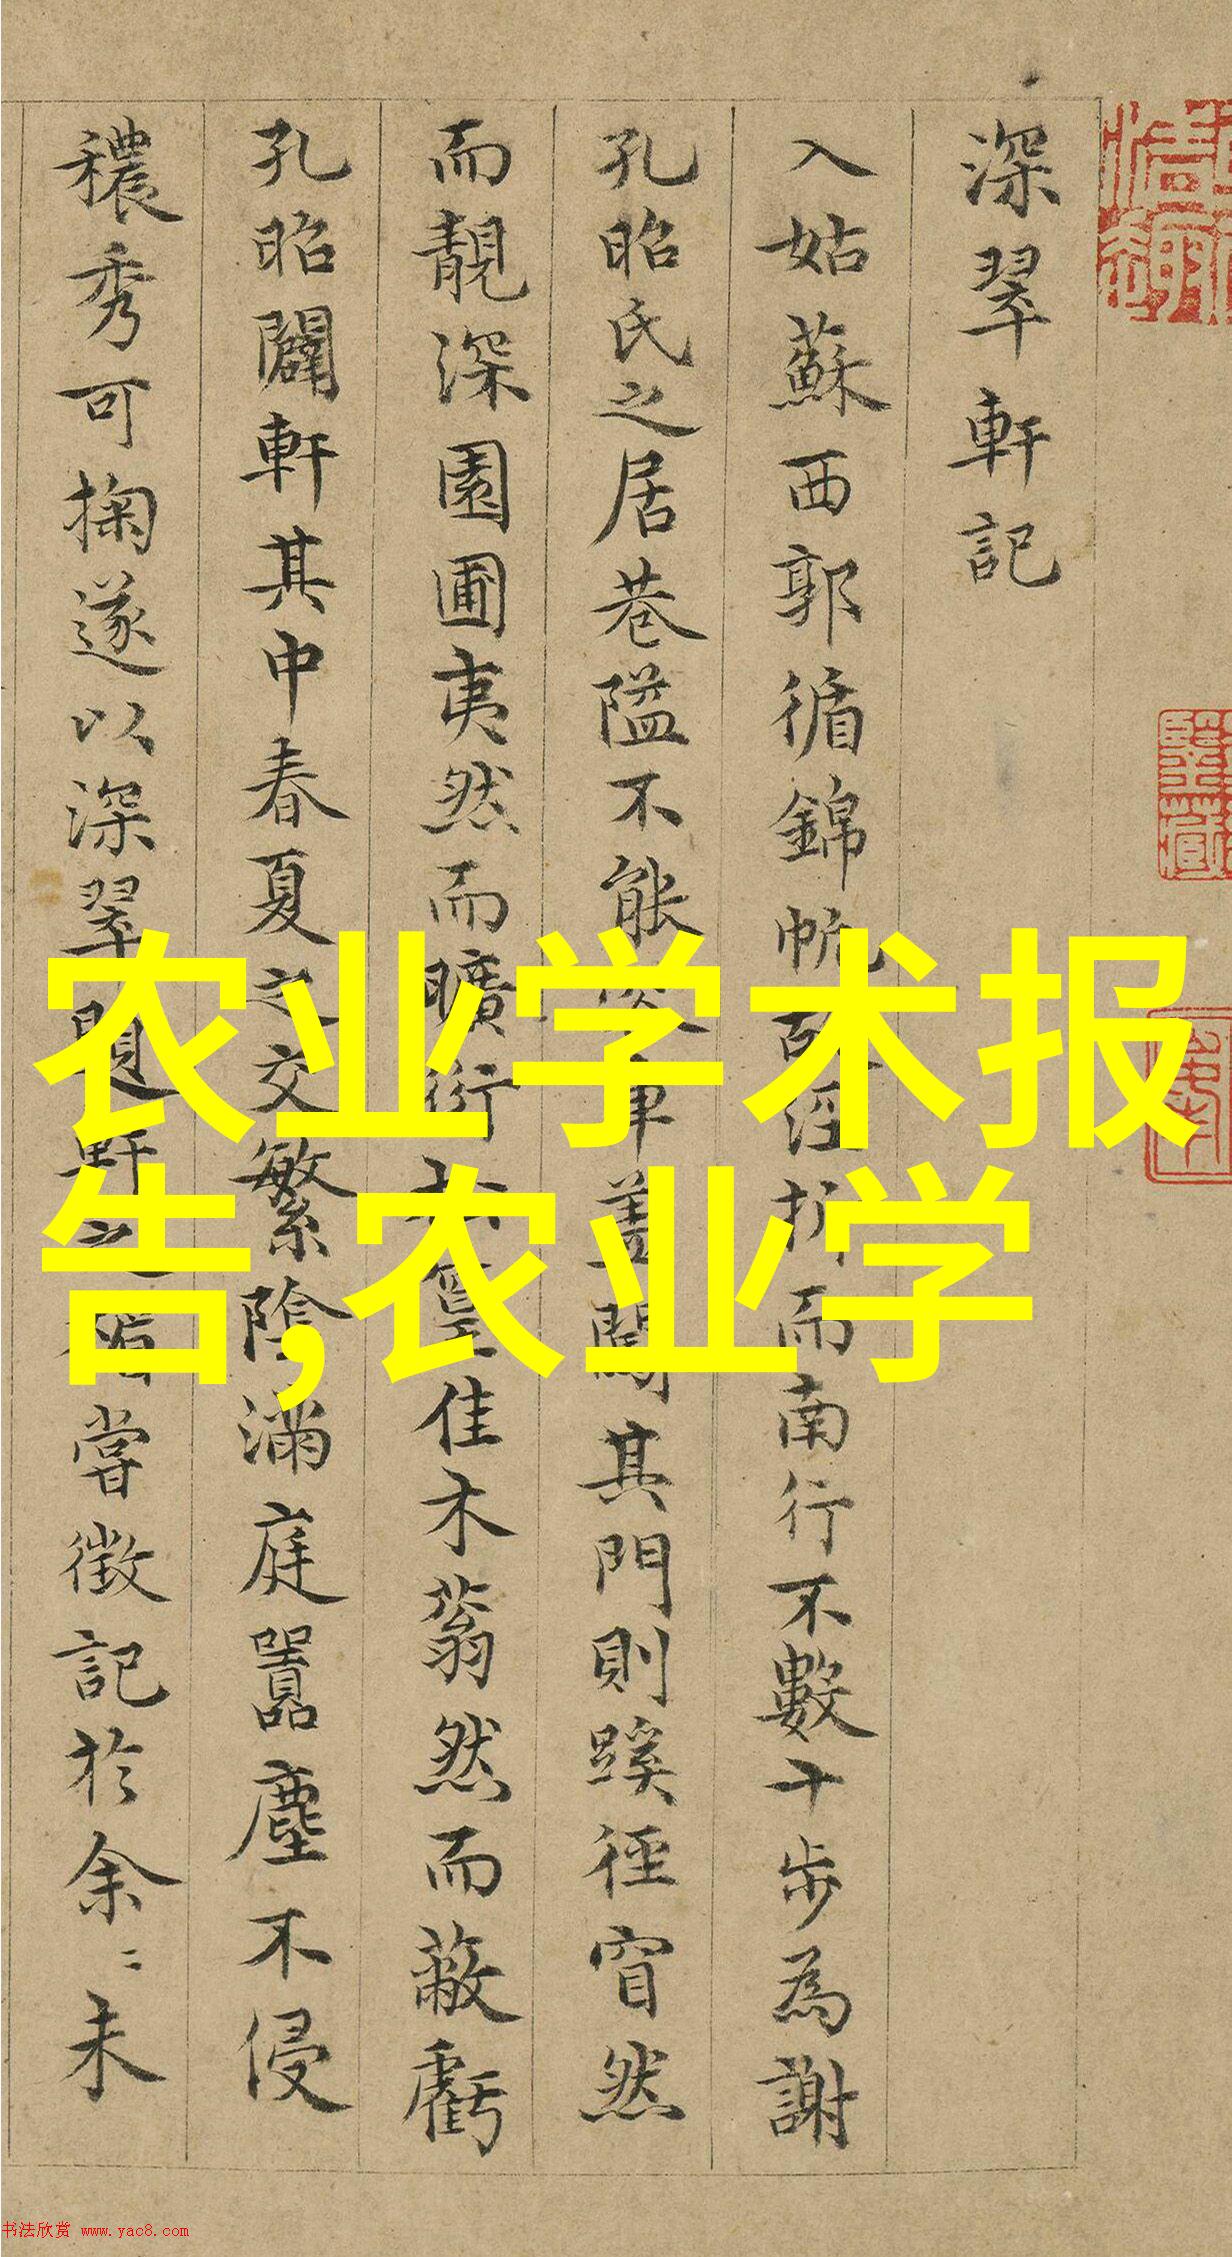 深翠軒記
入姑蘇西郭循錦帆涇折而南行不數十步為謝
孔昭氏之居巷隘不能車蓋闖其門則蹊徑窅然
而靚深園圃夷然而曠衍佳木蓊然而蔽虧
孔昭闢軒其中春夏之交繁陰滿庭囂塵不侵
穠秀可掬遂以深翠題軒之嘗徵記於余〻未
农业学术报
告,农业学
书法欣赏 www.yac8.com